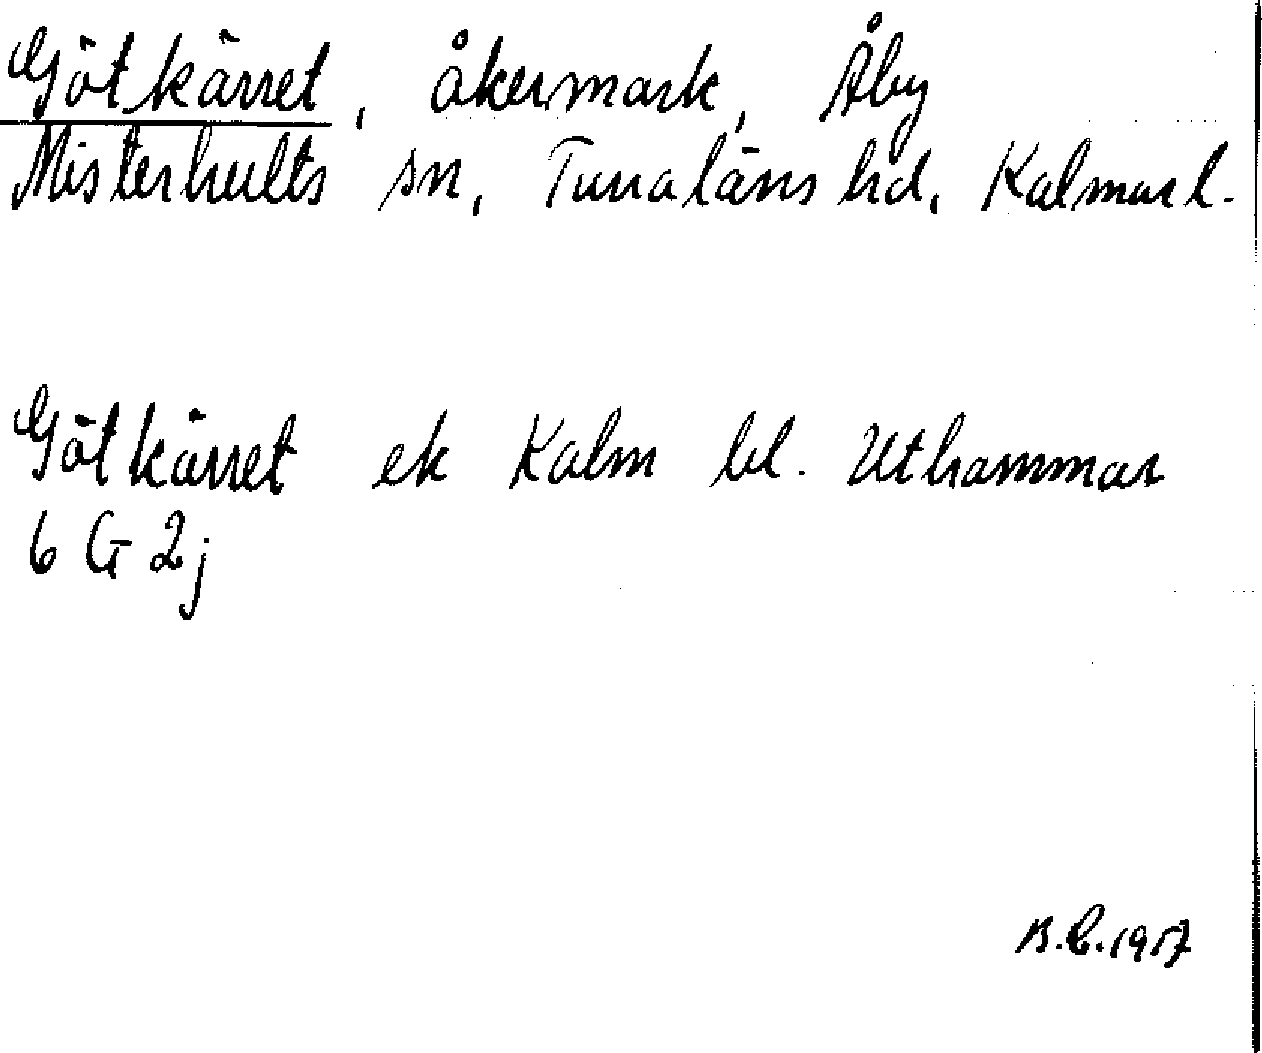 Götkärret, åkermark, Åby
Misterhults sn, Tunaläns hd, Kalmar l.
Götkärret ek Kalm bl. Uthammar
6 G 2j
B.C. 1957